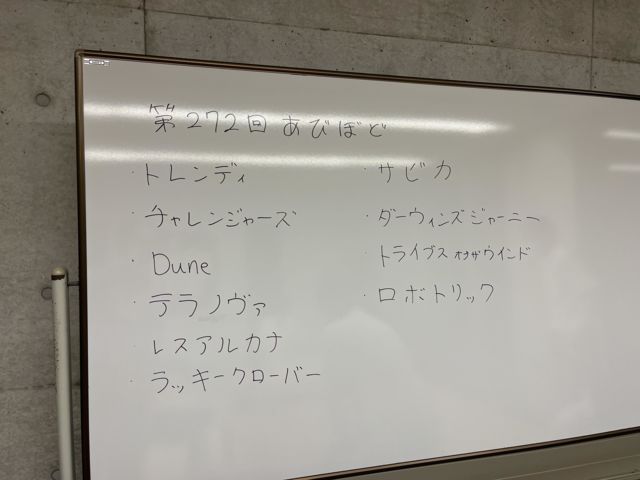 第272回 あびぼど
・トレンディ
・チャレンジャーズ
・Dune
・テラノヴァ
・レスアルカナ
・ラッキークローバー
・サビカ
・ダーウィンズジャーニー
・トライブスオブザウインド
・ロボトリック